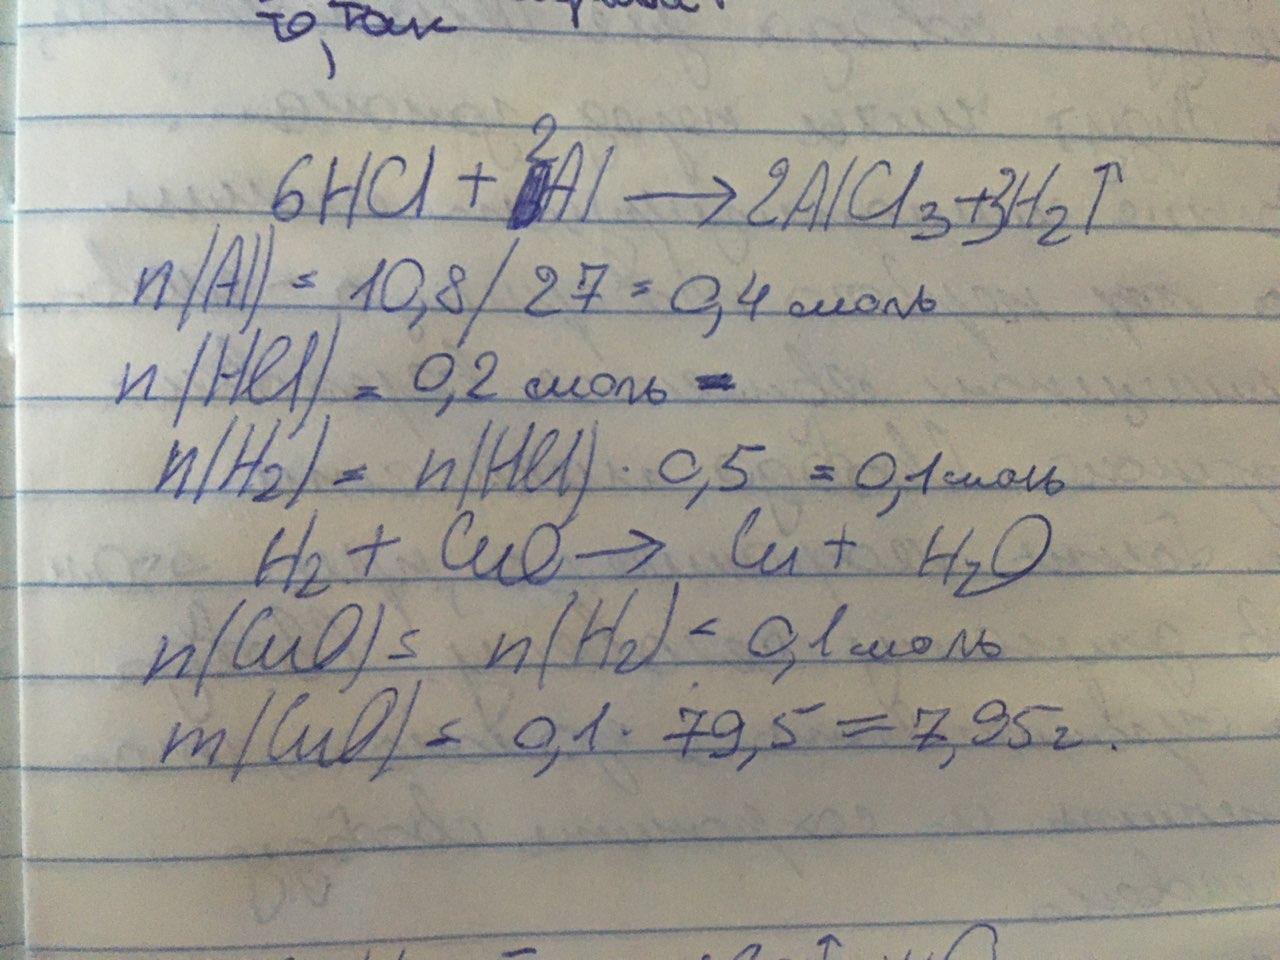 то, так
6HCl + 2Al → 2AlCl₃ + 3H₂↑
n(Al) = 10,8/27 = 0,4 моль
n(HCl) = 0,2 моль
n(H₂) = n(HCl) · 0,5 = 0,1 моль
H₂ + CuO → Cu + H₂O
n(CuO) = n(H₂) = 0,1 моль
m(CuO) = 0,1 · 79,5 = 7,95 г.